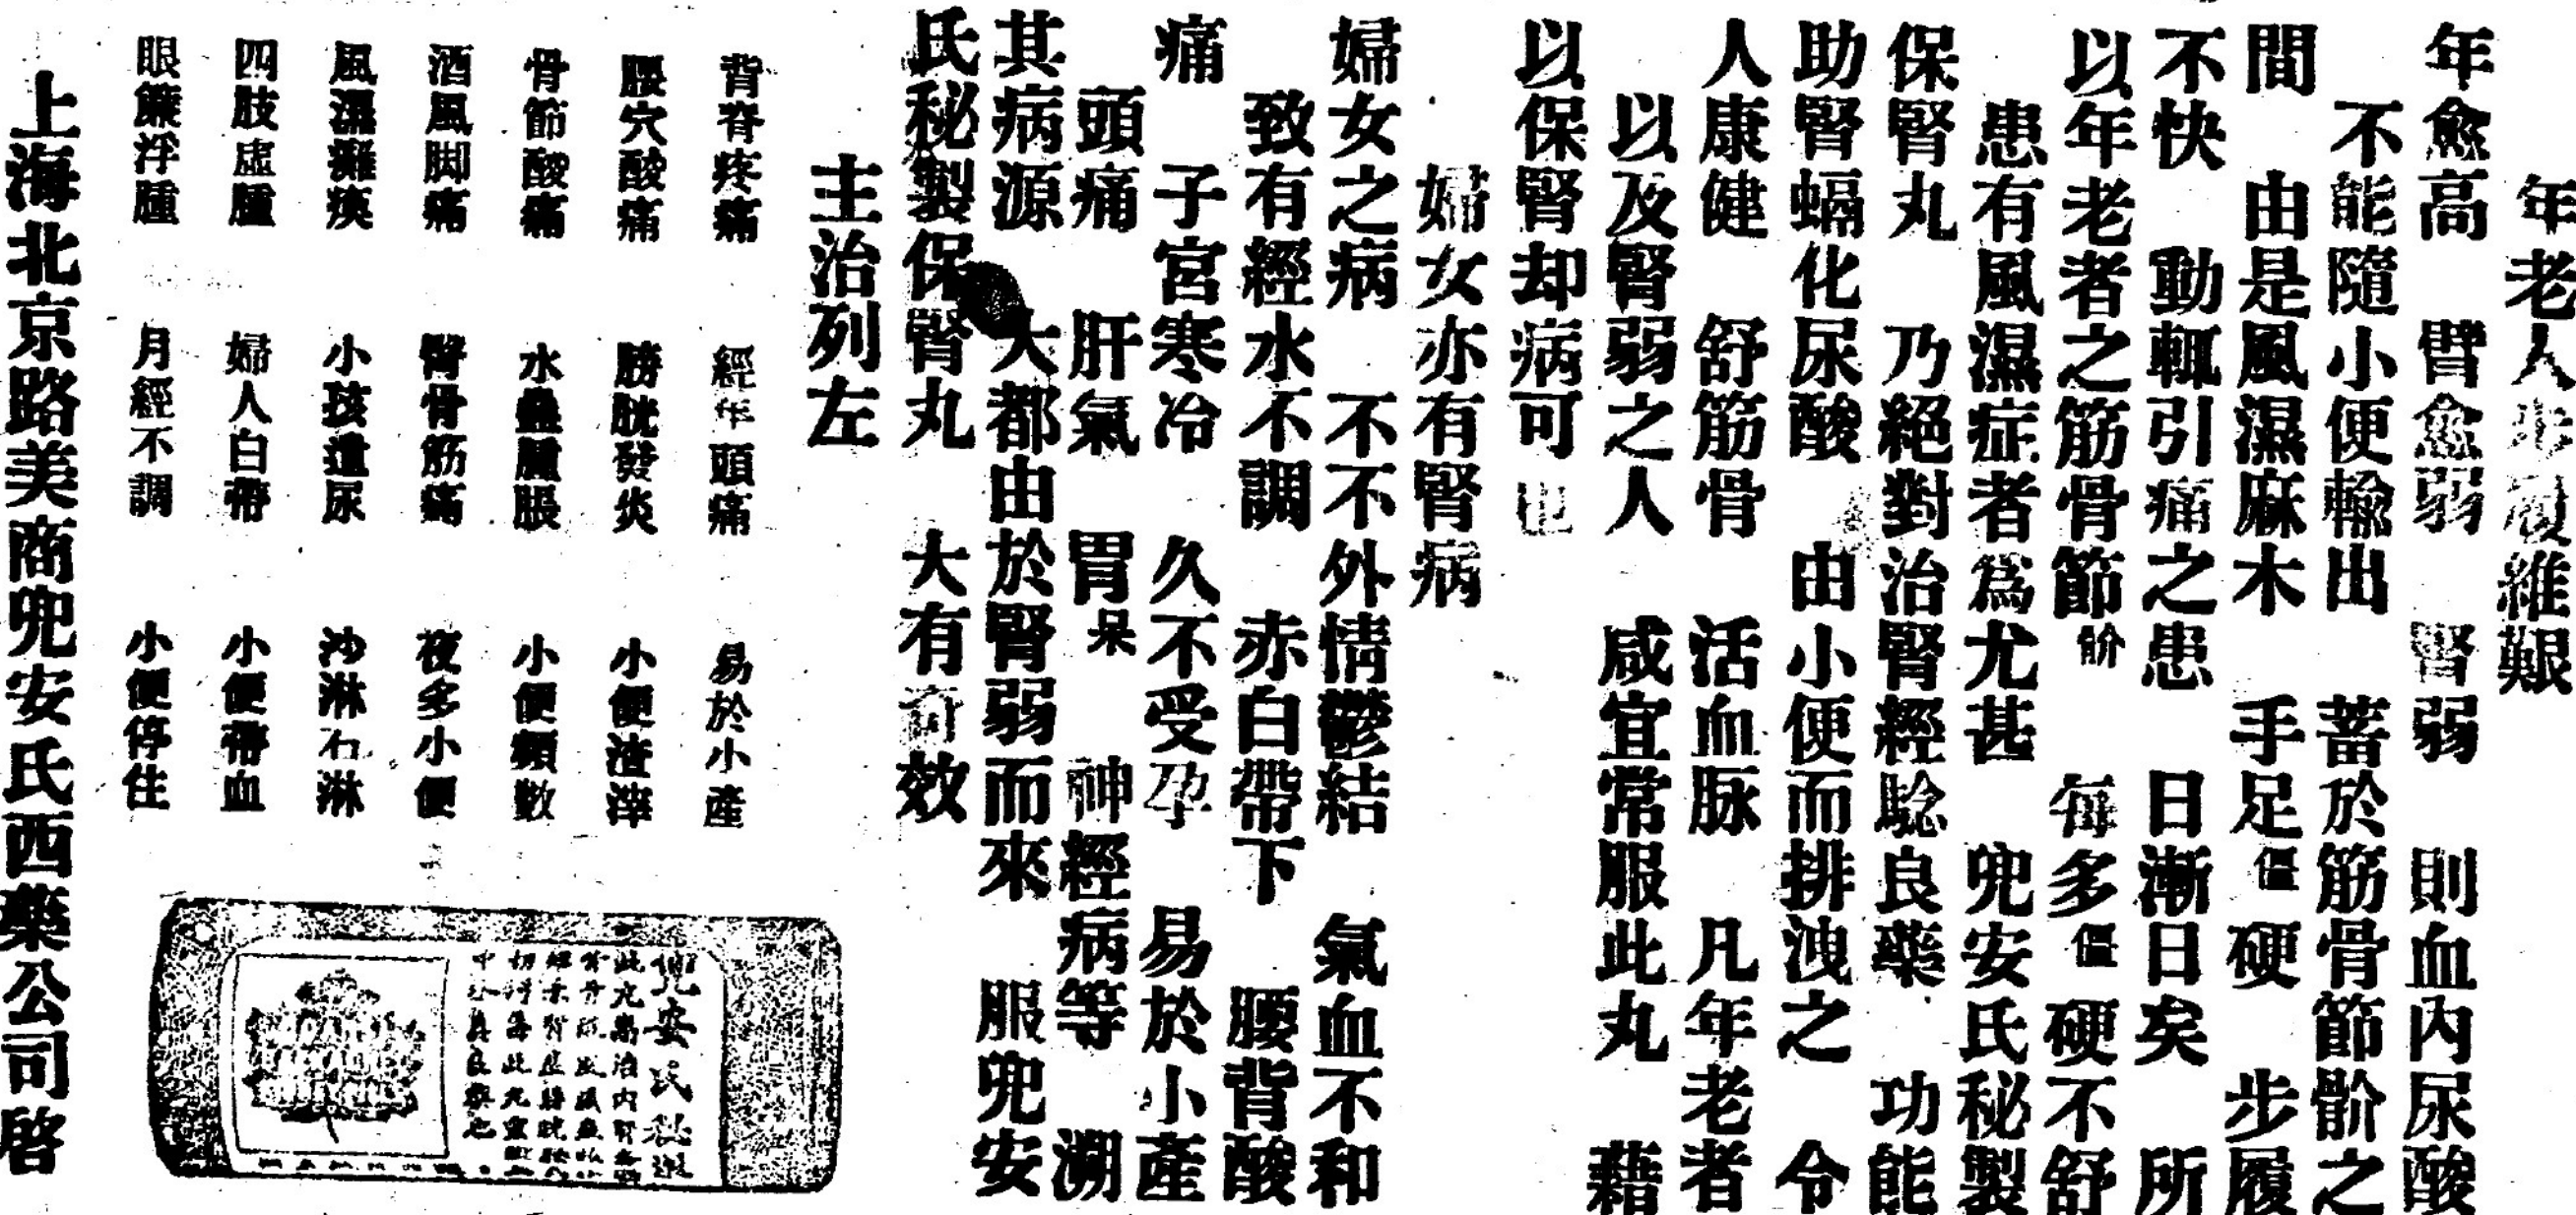 年老人步履維艱
年愈高 臂愈弱 腎弱 則血內尿酸
不能隨小便輸出 蓄於筋骨節骱之
間 由是風濕麻木 手足僵硬 步履
不快 動輒引痛之患 日漸日矣 所
以年老者之筋骨節骱 每多僵硬不舒
患有風濕症者爲尤甚 兜安氏秘製
保腎丸 乃絕對治腎經騐良藥 功能
助腎蝸化尿酸 由小便而排洩之 令
人康健 舒筋骨 活血脉 凡年老者
以及腎弱之人 咸宜常服此丸 藉
以保腎却病可也
婦女亦有腎病
婦女之病 不不外情鬱結 氣血不和
致有經水不調 赤白帶下 腰背酸
痛 子宮寒冷 久不受孕 易於小產
頭痛 肝氣 胃呆 神經病等 溯
其病源 大都由於腎弱而來 服兜安
氏秘製保腎丸 大有奇效
主治列左
背脊疼痛 經年頭痛 易於小產
腰穴酸痛 膀胱發炎 小便渣滓
骨節酸痛 水蠱腫脹 小便頻數
酒風脚痛 臂骨筋痛 夜多小便
風濕癱瘓 小孩遺尿 沙淋石淋
四肢虛腫 婦人白帶 小便帶血
眼簾浮腫 月經不調 小便停住
兜安氏秘製
上海北京路美商兜安氏西藥公司啓